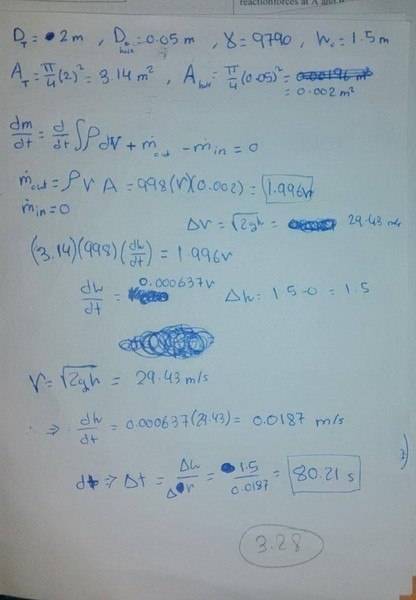 reaction forces at A and B
D_T = 2 m , D_hole = 0.05 m , γ = 9790 , h_o = 1.5 m
A_T = π/4 (2)² = 3.14 m² , A_hole = π/4 (0.05)² = 0.00196 m²
= 0.002 m²
dm/dt = d/dt ∫ρ dV + ṁ_out - ṁ_in = 0
ṁ_out = ρ V A = 998(V)(0.002) = 1.996V
ṁ_in = 0
ΔV = √2gh = 29.43 m/s
(3.14)(998)(dh/dt) = 1.996V
dh/dt = 0.000637V
Δh = 1.5-0 = 1.5
V = √2gh = 29.43 m/s
⇒ dh/dt = 0.000637(29.43) = 0.0187 m/s
dt ⇒ Δt = Δh/ΔV = 1.5/0.0187 = 80.21 s
3.28